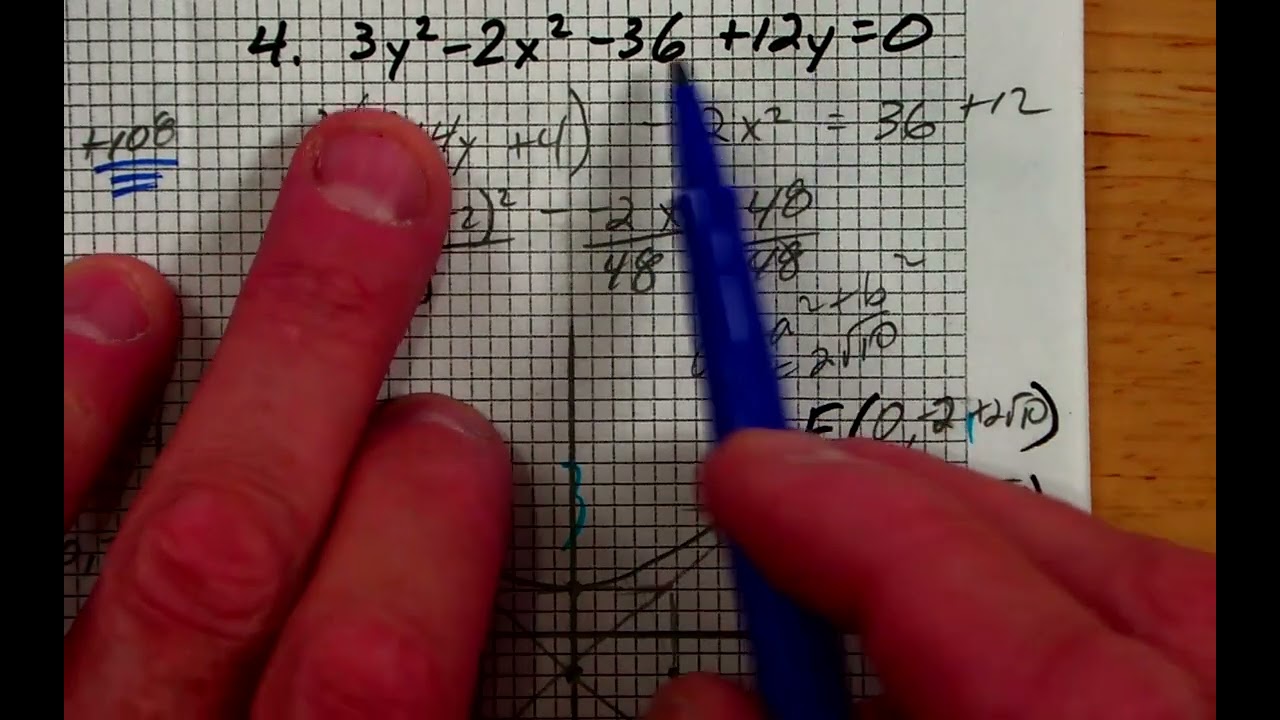 4. 3y² - 2x² - 36 + 12y = 0
+108
4y + 4) - 2x² = 36 + 12
2)² - 2x 48
48 48
a² + b²
= 2√10
F(0, -2 + 2√10)